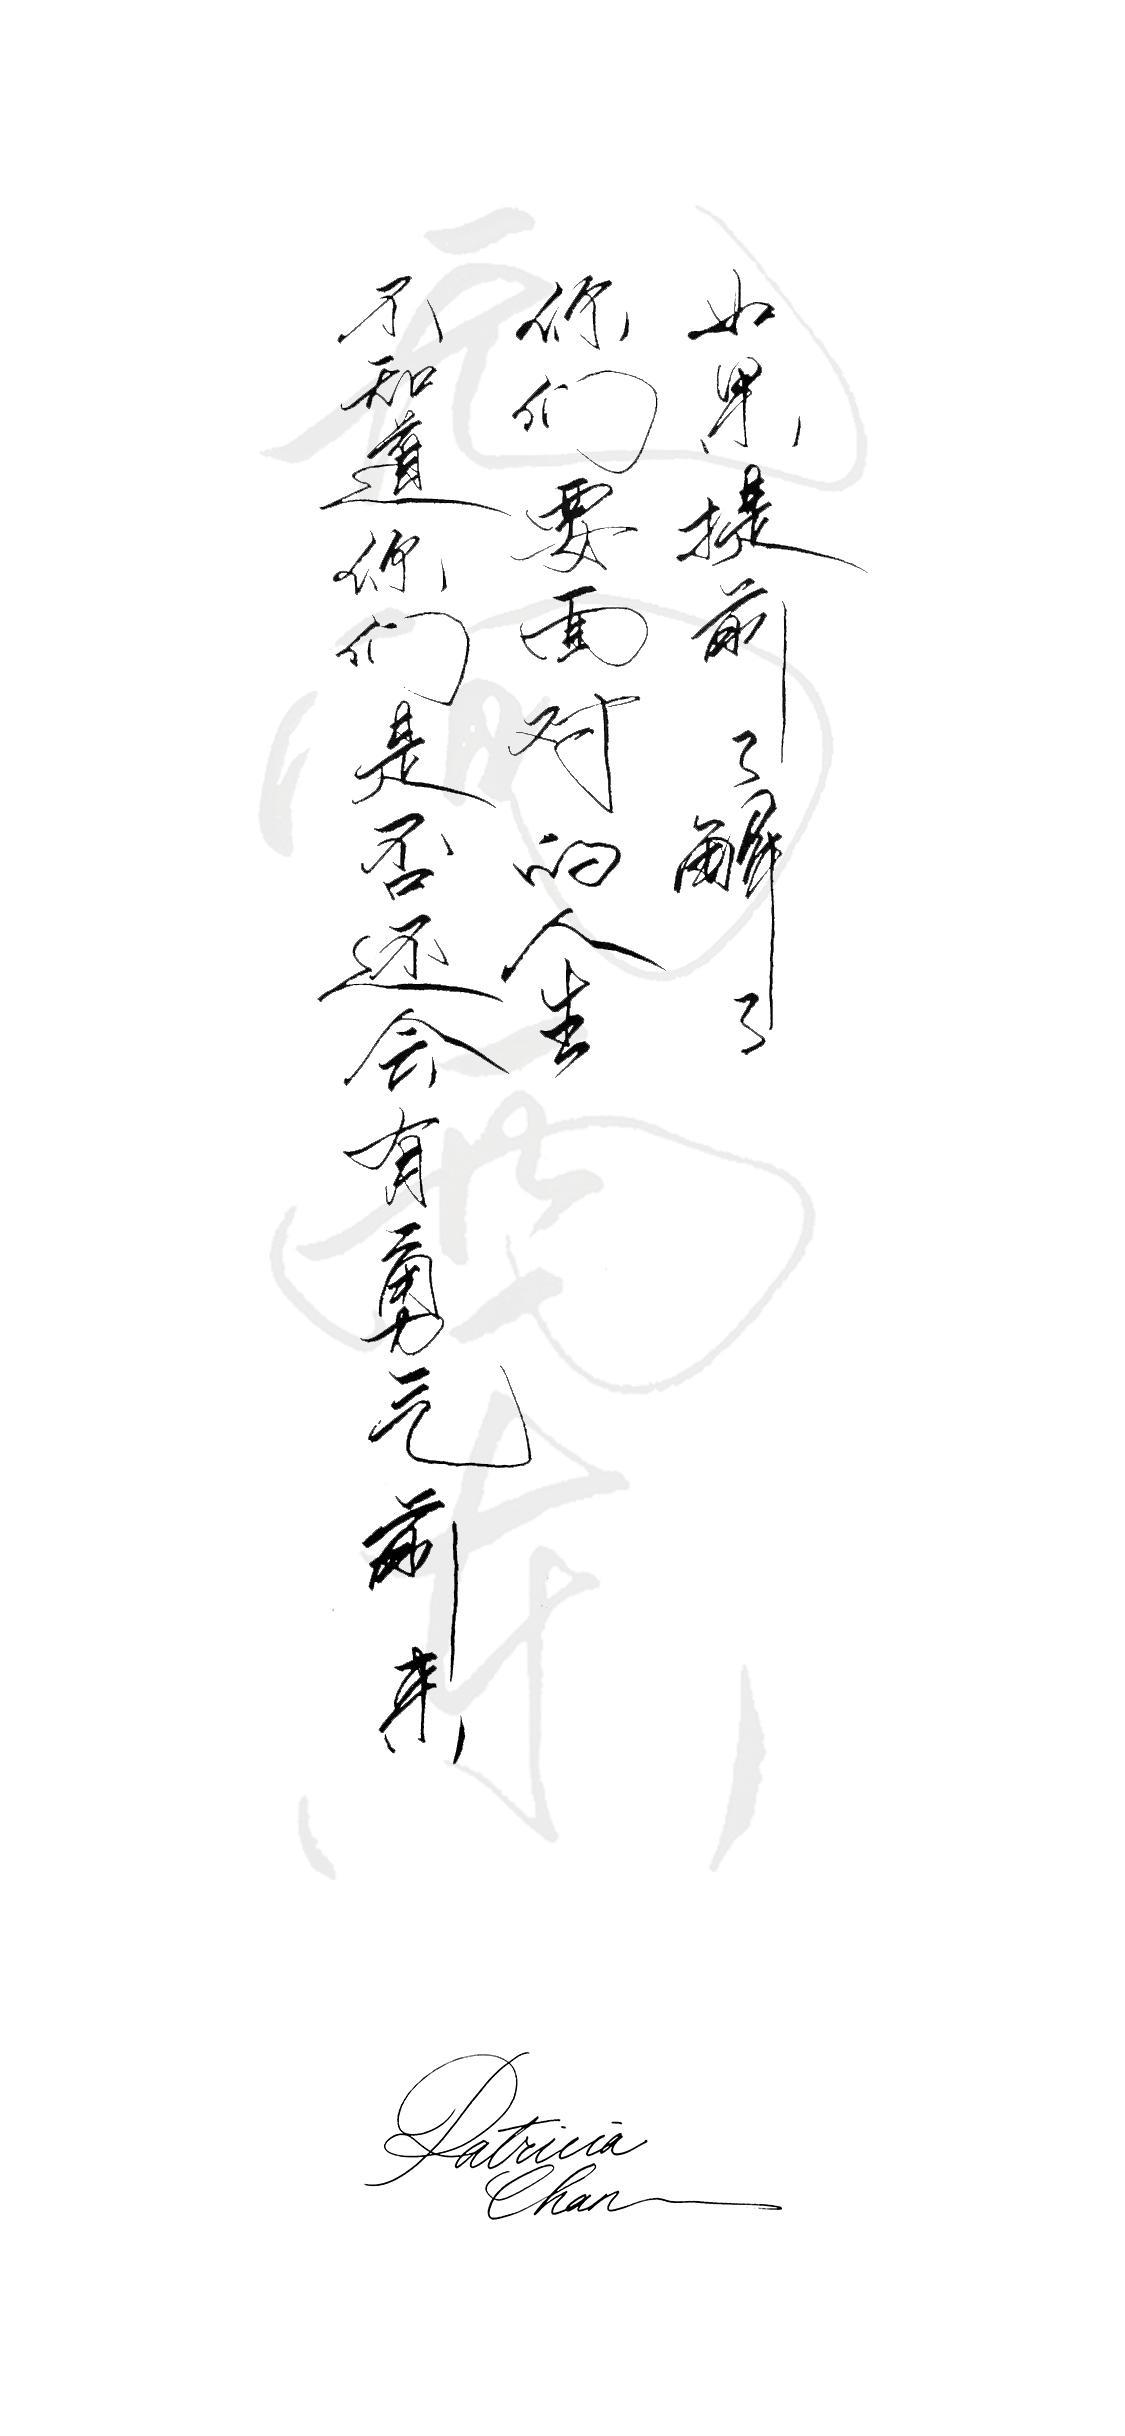 如果提前了解了
你们要面对的人生
不知道你们是否还会有勇气前来
无问西东
Patricia
Chan